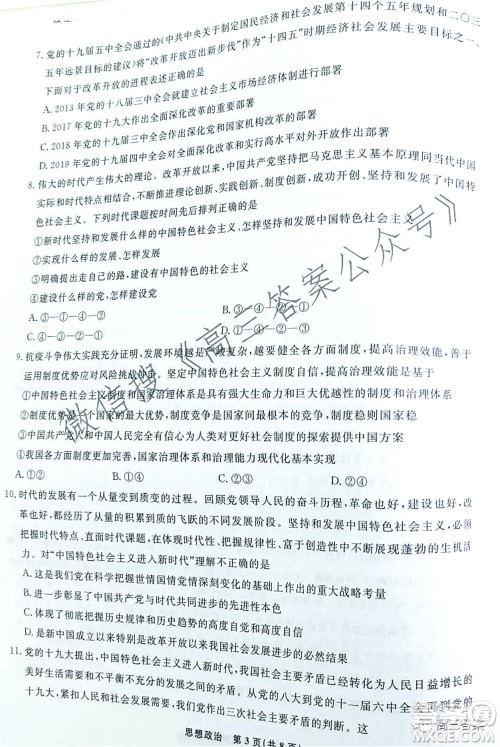 7. 党的十九届五中全会通过的《中共中央关于制定国民经济和社会发展第十四个五年规划和二〇三
五年远景目标的建议》将“改革开放迈出新步伐”作为“十四五”时期经济社会发展主要目标之一。
下面对于改革开放认识正确的是
A. 2013 年党的十八届三中全会就建立社会主义市场经济体制进行部署
B. 2017 年党的十九大作出全面深化改革的重大部署
C. 2018 年党的十九届三中全会作出深化党和国家机构改革的部署
D. 2019 年党的十九届四中全会对全面深化改革和实行高水平对外开放作出部署
8. 伟大的时代产生伟大的理论。改革开放以来,中国共产党坚持把马克思主义基本原理同当代中国
实际和时代特点相结合,不断推进理论创新、实践创新、制度创新,成功开创、坚持和发展了中国特
色社会主义。下列时代课题按时间先后排列正确的是
①新时代坚持和发展什么样的中国特色社会主义,怎样坚持和发展中国特色社会主义
②实现什么样的发展、怎样发展
③走出走自己的路,建设有中国特色的社会主义
④建设什么样的党,怎样建设党
A. ③—①—②—④
B. ③—④—②—①
C. ②—③—①—④
D. ④—③—①—②
9. 抗疫斗争伟大实践充分证明,发展环境越是严峻复杂,越要健全各方面制度,提高治理效能,善于
运用制度优势应对风险挑战的冲击。坚定中国特色社会主义制度自信,提高治理效能,是因为
①中国特色社会主义制度和国家治理体系是具有强大生命力和巨大优越性的制度和治理体系
②制度优势是一个国家的最大优势,制度竞争是国家间最根本的竞争,制度稳则国家稳
③中国共产党和中国人民完全有信心为人类对更好社会制度的探索提供中国方案
④我国各方面制度更加完善,国家治理体系和治理能力现代化基本实现
A. ①②
B. ①④
C. ②③
D. ③④
10. 时代的发展有一个从量变到质变的过程。回顾党领导人民的奋斗历程,革命也好,建设也好,改
革也好,都是从不断的量的积累到质的飞跃的不同发展阶段。坚持和发展中国特色社会主义,必须
把握时代特点,直面时代课题,在体现时代性、把握规律性、富于创造性中不断展现蓬勃的生机活
力。以下对“中国特色社会主义进入新时代”理解不正确的是
A. 这是我们党在科学把握世情国情党情深刻变化的基础上作出的重大战略考量
B. 这彰显了中国共产党与时代共同进步的先进本色
C. 这体现了把握历史规律和历史趋势的高度自觉和高度自信
D. 这是新中国成立以来特别是改革开放以来我国社会发展进步的必然结果
11. 党的十九大提出,中国特色社会主义进入新时代,我国社会主要矛盾已经转化为人民日益增长的
美好生活需要和不平衡不充分的发展之间的矛盾。从党的十一届六中全会到党的
十九大,紧扣人民和社会发展的需求,
思想政治 第 3 页(共 8 页)
微信搜《高三答案公众号》